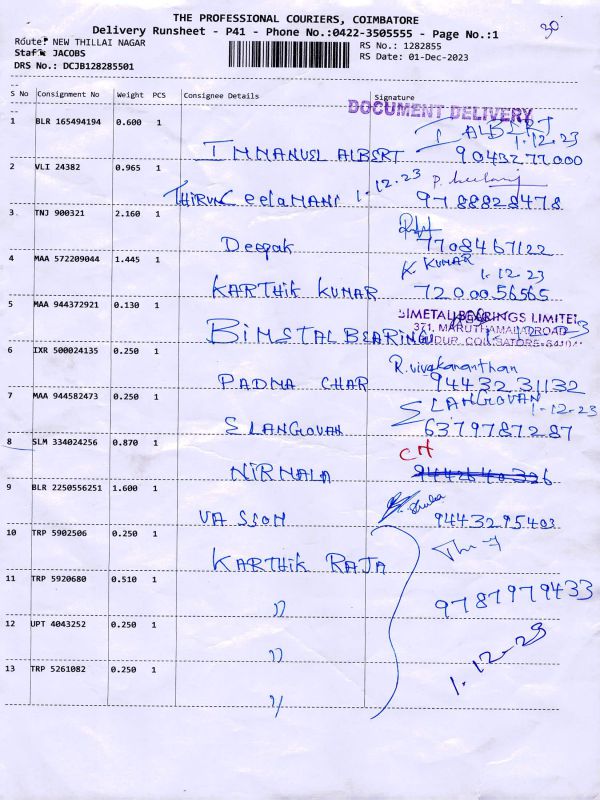 THE PROFESSIONAL COURIERS, COIMBATORE
30
Delivery Runsheet - P41 - Phone No.:0422-3505555 - Page No.:1
Route: NEW THILLAI NAGAR
RS No.: 1282855
Staff: JACOBS
RS Date: 01-Dec-2023
DRS No.: DCJB128285501
S No Consignment No Weight PCS Consignee Details Signature
DOCUMENT DELIVERY
1 BLR 165494194 0.600 1 IMMANUEL ALBERT I ALBERT 1.12.23
9043277000
2 VLI 24382 0.965 1 1.12.23
9788828478
3 TNJ 900321 2.160 1 Deepak
7708467122
4 MAA 572209044 1.445 1 KARTHIK KUMAR K. KUMAR 1.12.23
7200056565
5 MAA 944372921 0.130 1 BIMSTAL BEARING
BIMETAL BEARINGS LIMITED
371, MARUTHAMALAI ROAD
6 IXR 500024135 0.250 1 PADMA CHAR R. vivekananthan
9443231132
7 MAA 944582473 0.250 1 SLANGOVAN SLANGOVAN 1-12-23
6379787287
8 SLM 334024256 0.870 1 NIRMALA CH
9 BLR 2250556251 1.600 1 VASSON
9443295403
10 TRP 5902506 0.250 1 KARTHIK RAJA
11 TRP 5920680 0.510 1 "
9787979433
12 UPT 4043252 0.250 1 "
1.12-23
13 TRP 5261082 0.250 1 "